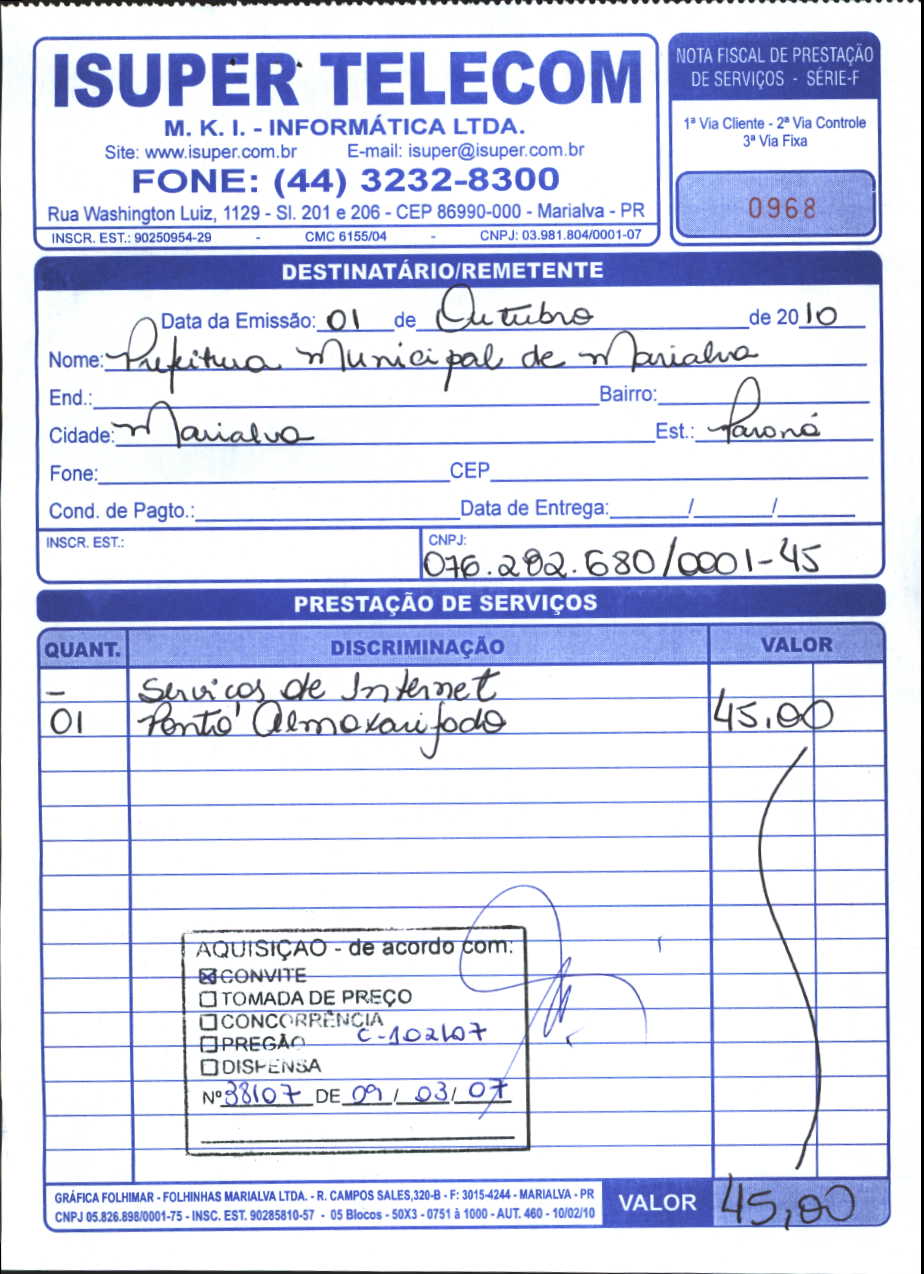 ISUPER TELECOM
M. K. I. - INFORMÁTICA LTDA.
Site: www.isuper.com.br E-mail: isuper@isuper.com.br
FONE: (44) 3232-8300
Rua Washington Luiz, 1129 - Sl. 201 e 206 - CEP 86990-000 - Marialva - PR
INSCR. EST.: 90250954-29 - CMC 6155/04 - CNPJ: 03.981.804/0001-07
NOTA FISCAL DE PRESTAÇÃO
DE SERVIÇOS - SÉRIE-F
1ª Via Cliente - 2ª Via Controle
3ª Via Fixa
0968
DESTINATÁRIO/REMETENTE
Data da Emissão: 01 de Outubro de 2010
Nome: Prefeitura Municipal de Marialva
End.: Bairro:
Cidade: Marialva Est.: Paraná
Fone: CEP
Cond. de Pagto.: Data de Entrega: / /
INSCR. EST.: CNPJ:
076.282.680/0001-45
PRESTAÇÃO DE SERVIÇOS
QUANT. DISCRIMINAÇÃO VALOR
- Serviços de Internet
01 Ponto Almoxarifado 45,00
AQUISIÇÃO - de acordo com:
☒ CONVITE
☐ TOMADA DE PREÇO
☐ CONCORRÊNCIA
☐ PREGÃO C-102107
☐ DISPENSA
Nº 38107 DE 09 / 03 / 07
GRÁFICA FOLHIMAR - FOLHINHAS MARIALVA LTDA. - R. CAMPOS SALES,320-B - F: 3015-4244 - MARIALVA - PR
CNPJ 05.826.898/0001-75 - INSC. EST. 90285810-57 - 05 Blocos - 50X3 - 0751 à 1000 - AUT. 460 - 10/02/10
VALOR 45,00